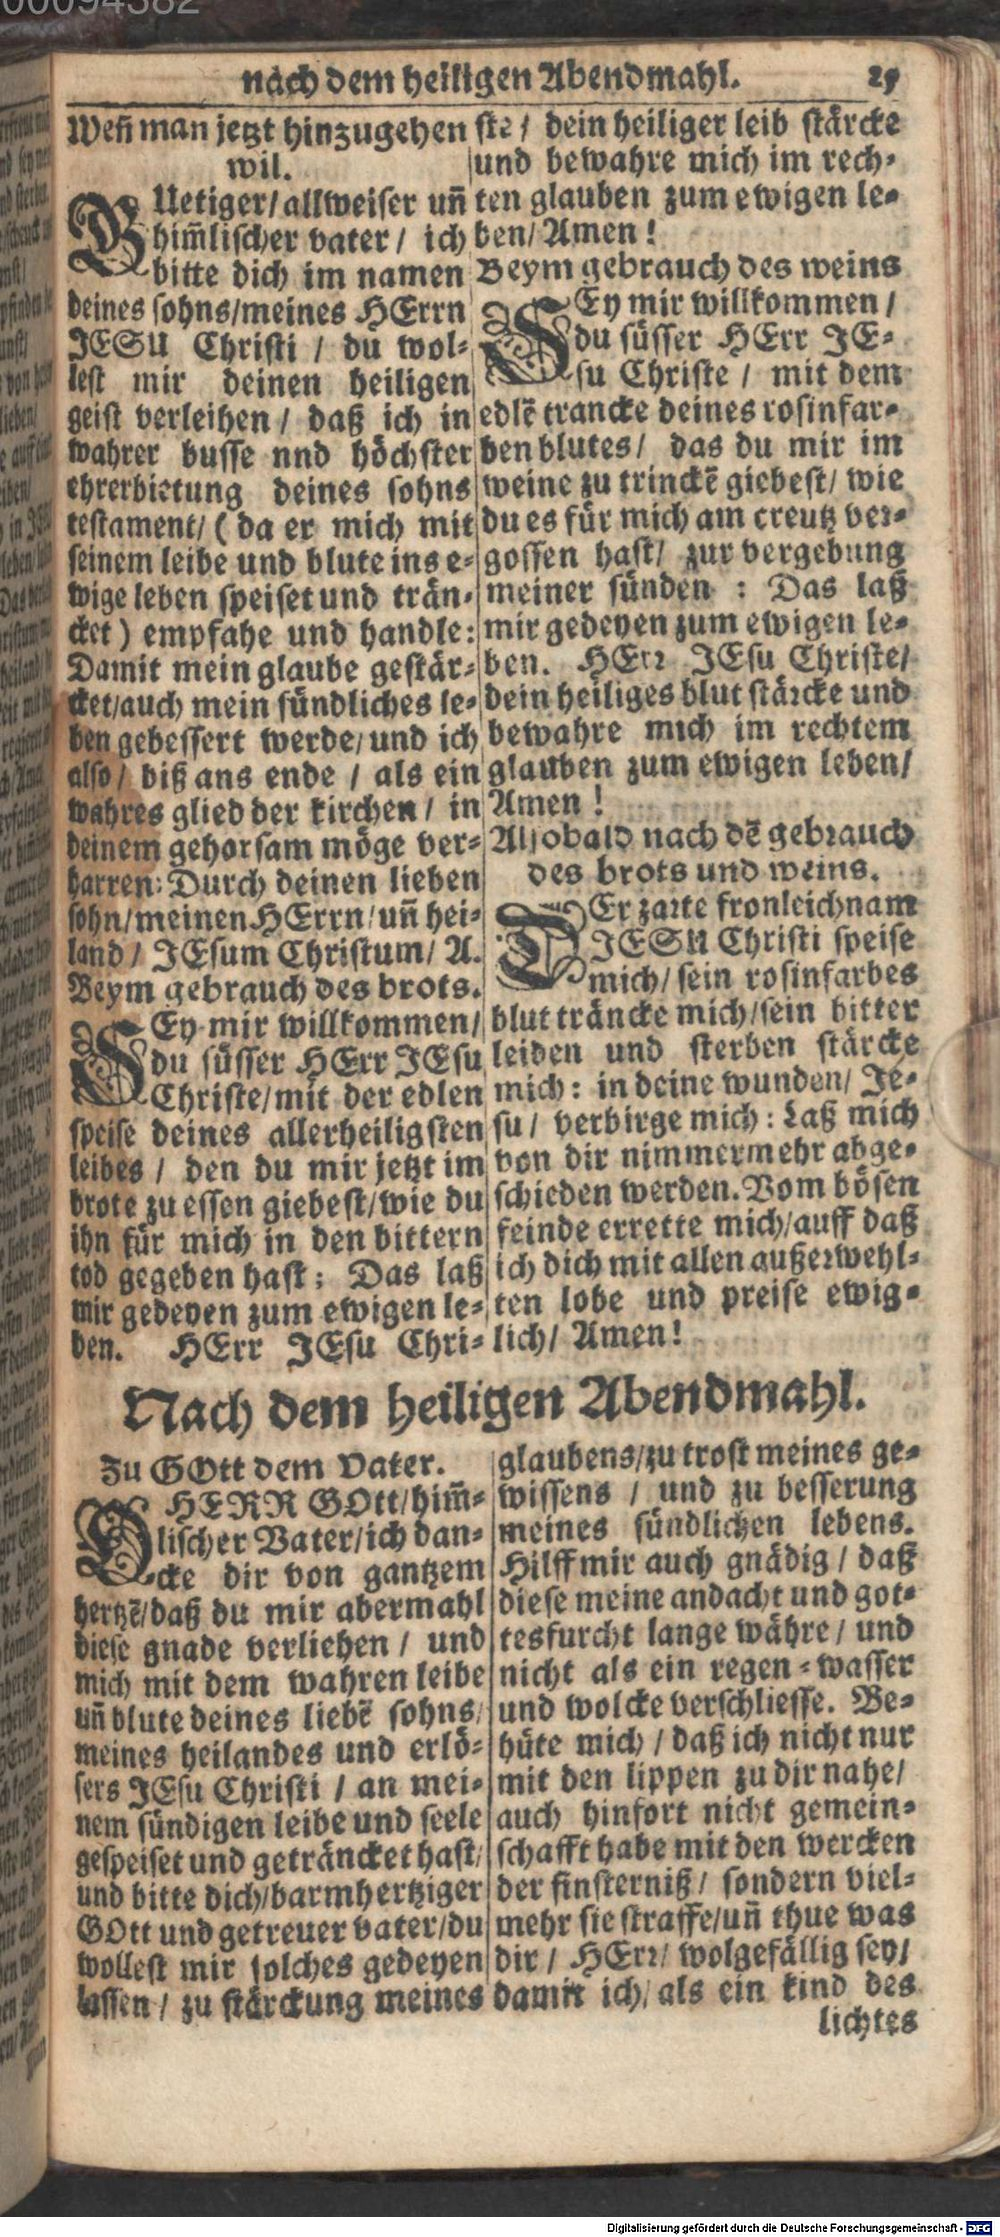 nach dem heiligen Abendmahl. 29
Weñ man jetzt hinzugehen
wil.
GUetiger/ allweiser uñ
him̃lischer vater / ich
bitte dich im namen
deines sohns/meines HErrn
JESU Christi / du wol-
lest mir deinen heiligen
geist verleihen / daß ich in
wahrer busse nnd höchster
ehrerbietung deines sohns
testament/ ( da er mich mit
seinem leibe und blute ins e-
wige leben speiset und trän-
cket ) empfahe und handle:
Damit mein glaube gestär-
cket/auch mein sündliches le-
ben gebessert werde/ und ich
also / biß ans ende / als ein
wahres glied der kirchen / in
deinem gehorsam möge ver-
harren: Durch deinen lieben
sohn/meinen HErrn/ uñ hei-
land / JEsum Christum/ A.
Beym gebrauch des brots.
SEy mir willkommen/
du süsser HErr JEsu
Christe/mit der edlen
speise deines allerheiligsten
leibes / den du mir jetzt im
brote zu essen giebest/wie du
ihn für mich in den bittern
tod gegeben hast; Das laß
mir gedeyen zum ewigen le-
ben. HErr JEsu Chri-
ste / dein heiliger leib stärcke
und bewahre mich im rech-
ten glauben zum ewigen le-
ben/ Amen !
Beym gebrauch des weins
SEy mir willkommen /
du süsser HErr JE-
su Christe / mit dem
edlẽ trancke deines rosinfar-
ben blutes/ das du mir im
weine zu trinckẽ giebest/ wie
du es für mich am creutz ver-
gossen hast/ zur vergebung
meiner sünden : Das laß
mir gedeyen zum ewigen le-
ben. HErr JEsu Christe/
dein heiliges blut stärcke und
bewahre mich im rechtem
glauben zum ewigen leben/
Amen !
Alsobald nach dẽ gebrauch
des brots und weins.
DEr zarte fronleichnam
JESU Christi speise
mich/ sein rosinfarbes
blut träncke mich/sein bitter
leiden und sterben stärcke
mich: in deine wunden/ Je-
su / verbirge mich: Laß mich
von dir nimmermehr abge-
schieden werden. Vom bösen
feinde errette mich/auff daß
ich dich mit allen außerwehl-
ten lobe und preise ewig-
lich/ Amen!
Nach dem heiligen Abendmahl.
Zu GOtt dem Vater.
O HERR GOtt/him̃-
lischer Vater/ich dan-
cke dir von gantzem
hertzẽ/daß du mir abermahl
diese gnade verliehen / und
mich mit dem wahren leibe
uñ blute deines liebẽ sohns/
meines heilandes und erlö-
sers JEsu Christi / an mei-
nem sündigen leibe und seele
gespeiset und geträncket hast/
und bitte dich/barmhertziger
GOtt und getreuer vater/du
wollest mir solches gedeyen
lassen / zu stärckung meines
glaubens/zu trost meines ge-
wissens / und zu besserung
meines sündlichen lebens.
Hilff mir auch gnädig / daß
diese meine andacht und got-
tesfurcht lange währe / und
nicht als ein regen-wasser
und wolcke verschliesse. Be-
hüte mich / daß ich nicht nur
mit den lippen zu dir nahe/
auch hinfort nicht gemein-
schafft habe mit den wercken
der finsterniß / sondern viel-
mehr sie straffe/uñ thue was
dir / HErr/ wolgefällig sey/
damit ich/ als ein kind des
lichtes
Digitalisierung gefördert durch die Deutsche Forschungsgemeinschaft - DFG